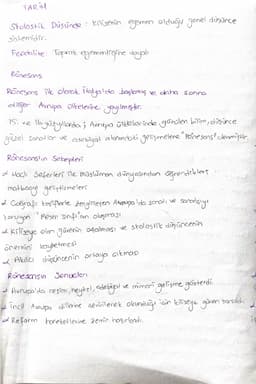 TARİH
Skolastik Düşünce : Kilisenin egemen olduğu genel düşünce
sistemidir.
Feodalite: Toprak egemenliğine dayalı
Rönesans
Rönesans ilk olarak İtalya'da başlamış ve daha sonra
diğer Avrupa ülkelerine yayılmıştır.
15. ve 16. yüzyıllarda; Avrupa ülkelerinde görülen bilim, düşünce
güzel sanatlar ve edebiyat alanındaki gelişmelere "Rönesans" denmiştir.
Rönesans'ın Sebepleri
Haçlı Seferleri ile müslüman dünyasından öğrendikleri
matbaayı geliştirmeleri
Coğrafi keşiflerle zenginleşen Avrupa'da sanatı ve sanatçıyı
koruyan "Mesen sınıfı"nın oluşması.
Kiliseye olan güvenin azalması ve skolastik düşüncenin
önemini kaybetmesi
Akılcı düşüncenin ortaya çıkması
Rönesansın Sonuçları
Avrupa'da resim, heykel, edebiyat ve mimari gelişme gösterdi.
İncil Avrupa dillerine çevrilerek okunduğu için kiliseye güven sarsıldı.
Reform hareketlerine zemin hazırladı.